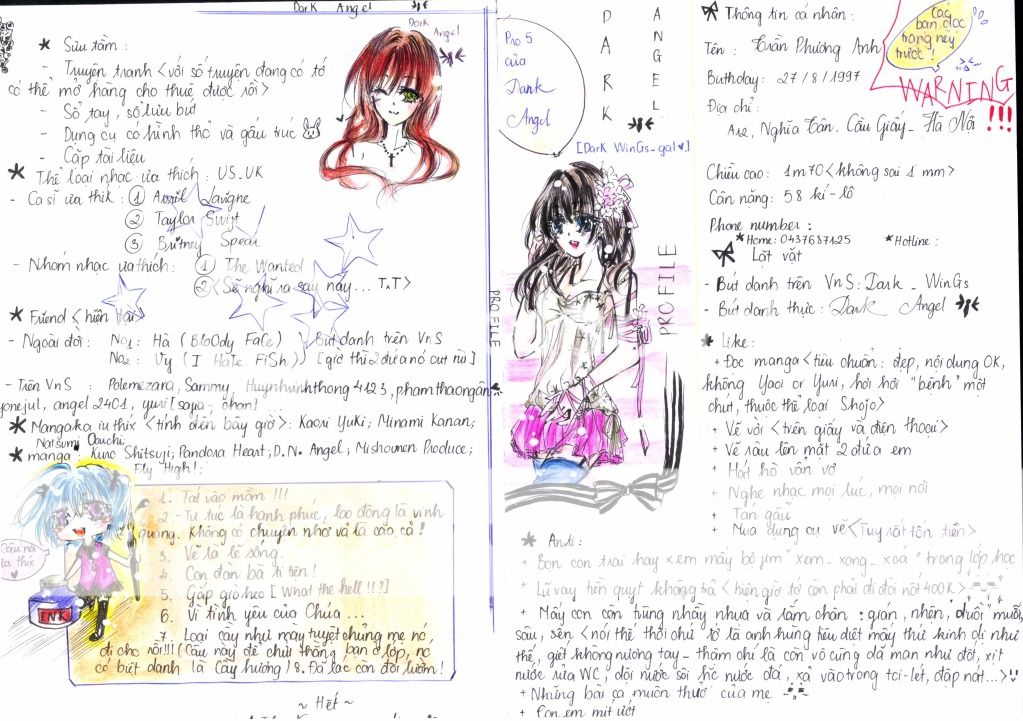 Dark Angel
Dark Angel
* Sưu tầm :
- Truyện tranh <với số truyện đang có tớ
có thể mở hàng cho thuê được rồi>
- Sổ tay, sổ lưu bút
- Dụng cụ có hình thỏ và gấu trúc
- Cặp tài liệu
* Thể loại nhạc ưa thích : US.UK
- Ca sĩ ưa thik : 1 Avril Lavigne
2 Taylor Swift
3 Britney Spear
- Nhóm nhạc ưa thích : 1 The Wanted
2 <Sẽ nghĩ ra sau này... T.T>
* Friend <hiện tại> :
- Ngoài đời : No1: Hà (BlOOdy FaCe) Bút danh trên VnS
No2: Vy (I HaTe FiSh) [giờ thì 2 đứa nó out rùi]
- Trên VnS : Polemezara, Sammy, Huynhvinhthong4123, phamthaongân
yonejul, angel 2401, yuri
* Mangaka iu thix <tính đến bây giờ> : Kaori Yuki; Minami Kanan;
Natsumi
* manga : Kuro Shitsuji; Pandora Heart; D.N. Angel; Mishounen Produce;
Fly High!;
1. Tát vào mồm !!!
2. Tự túc là hạnh phúc, lao động là vinh
quang. Không có chuyện nhờ vả là cao cả !
3. Vẽ là lẽ sống.
4. Con đàn bà ti tiện !
5. Gặp gió heo [What the hell !!?]
6. Vì tình yêu của Chúa ...
7. Loại cây như mày tuyệt chủng mẹ nó
đi cho rồi !!! (Câu này để chửi thằng bạn ở lớp, nó
có biệt danh là Cây hương) 8. Đã lạc còn đòi lườm !
Câu nói
ta thix
INK
~ Hết ~
PROFILE
Pro 5
của
Dark
Angel
DARK
ANGEL
[DarK WinGs_gal]
PROFILE
Thông tin cá nhân :
Các
bạn đọc
trang này
trước !
WARNING !!!
Tên : Trần Phương Anh
Birthday : 27/8/1997
Địa chỉ :
Nghĩa Tân, Cầu Giấy - Hà Nội
Chiều cao : 1m70 <không sai 1 mm>
Cân nặng : 58 kí-lô
Phone number :
* Home: 0437687125 * Hotline :
Lặt vặt
- Bút danh trên VnS : Dark_WinGs
- Bút danh thực : Dark Angel
* Like :
+ Đọc manga <tiêu chuẩn : đẹp, nội dung OK,
không Yaoi or Yuri, hơi hơi "bệnh" một
chút, thuộc thể loại Shojo>
+ Vẽ vời <trên giấy và điện thoại>
+ Vẽ râu lên mặt 2 đứa em
+ Hát hò vẩn vơ
+ Nghe nhạc mọi lúc, mọi nơi
+ Tán gẫu
+ Mua dụng cụ vẽ <Tuy rất tốn tiền>
* Anti :
+ Bọn con trai hay xem mấy bộ fim "xem_xong_xoá" trong lớp học
+ Lũ vay tiền quỵt không trả <hiện giờ tớ còn phải đi đòi nợ 400K>
+ Mấy con côn trùng nhầy nhụa và lắm chân : gián, nhện, muỗi,
sâu, sên <nói thế thôi chứ tớ là anh hùng tiêu diệt mấy thứ kinh dị như
thế, giết không nương tay - thậm chí là còn vô cùng dã man như đốt, xịt
nước rửa WC, dội nước sôi hoặc nước đá, xả vào trong toi-let, đập nát...>
+ Những bài ca muôn thuở của mẹ
+ Con em mít ướt